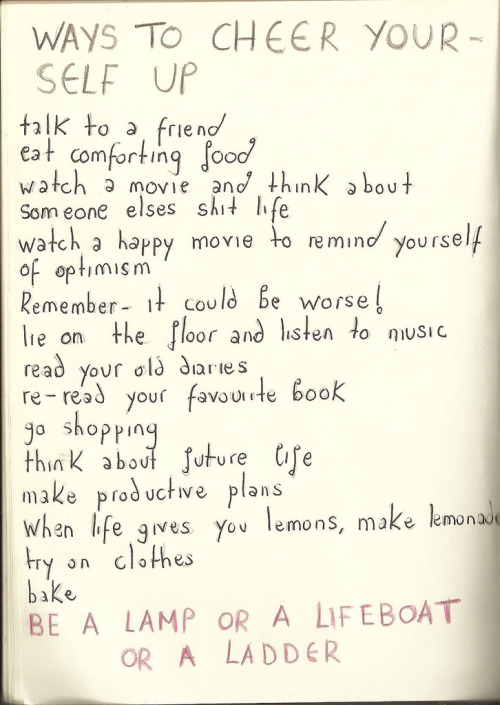 WAYS TO CHEER YOUR-
SELF UP
talk to a friend
eat comforting food
watch a movie and think about
someone elses shit life
watch a happy movie to remind yourself
of optimism
Remember- it could be worse!
lie on the floor and listen to music
read your old diaries
re-read your favourite book
go shopping
think about future life
make productive plans
When life gives you lemons, make lemonade
try on clothes
bake
BE A LAMP OR A LIFEBOAT
OR A LADDER